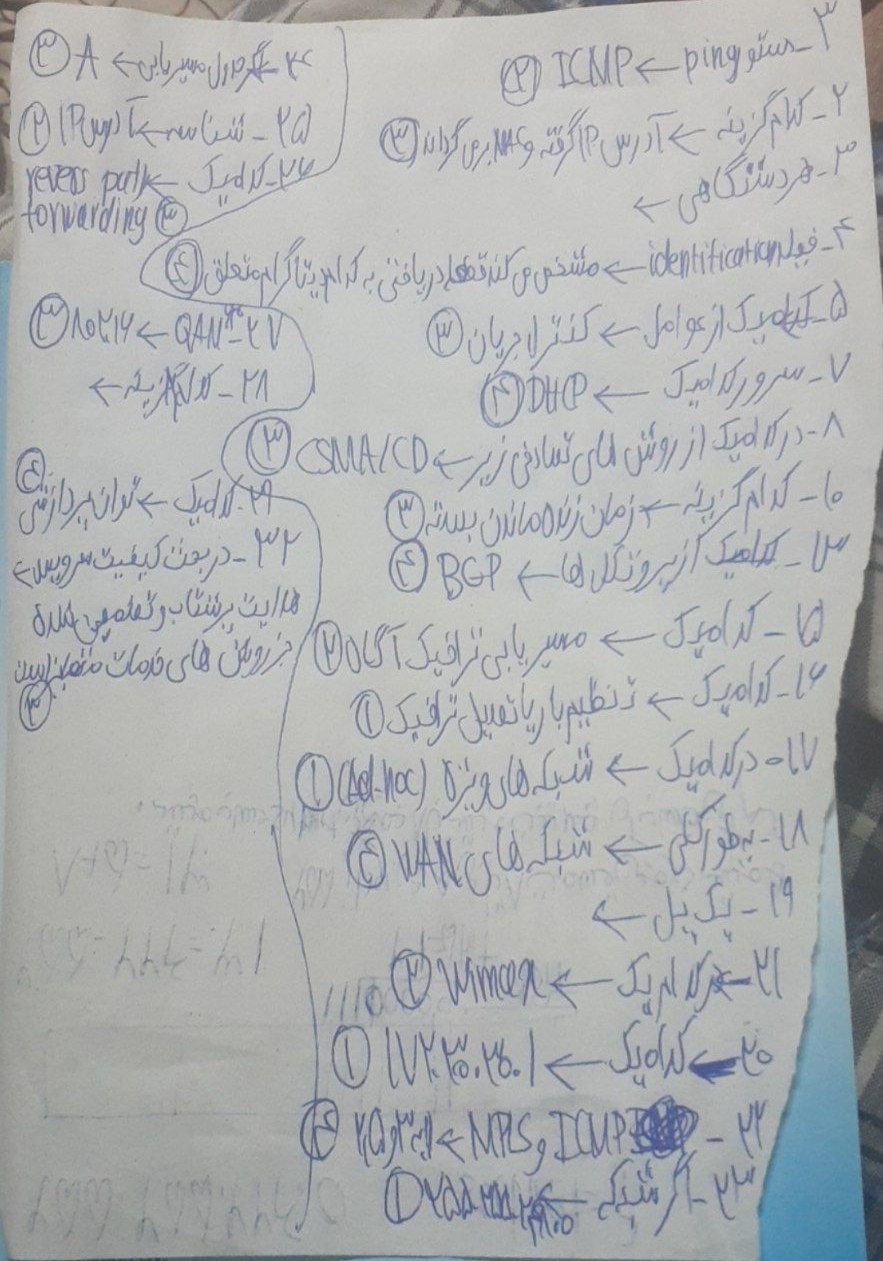 ۳- دستور ping ← ICMP ②
۲- کدام گزینه ← آدرس IP گرفته و MAC برمی گرداند ③
۳- هر دستگاهی ←
۴- فیلد identification ← مشخص می کند قطعه دریافتی به کدام دیتاگرام متعلق ④
۵- کدامیک از عوامل ← کنترل جریان ③
۷- سرور کدامیک ← DHCP ④
۸- در کدامیک از روش های تصادفی زیر ← CSMA/CD ③
۱۰- کدام گزینه ← زمان زنده ماندن بسته ③
۱۳- کدامیک از پروتکل ها ← BGP ④
۱۵- کدامیک ← مسیریابی ترافیک آگاه ②
۱۶- کدامیک ← تنظیم بار یا تعدیل ترافیک ①
۱۷- در کدامیک ← شبکه های ویژه (Ad-hoc) ①
۱۸- به طور کلی ← شبکه های WAN ④
۱۹- یک پل ←
۲۱- کدام یک ← Wimax ②
۲۰- کدامیک ← ۱۷۲.۳۰.۲۰.۱ ①
۲۲- ICMP و MPLS ← لایه ۳ و ۲٫۵ ④
۲۳- اگر شبکه ← ①
۲۴- جدول مسیریابی ← A ③
۲۵- شناسه ← آدرس IP ②
۲۶- کدامیک ← revers path
forwarding ③
۲۷- ← ۸۰۲.۱۶ ③
۲۸- کدام گزینه ←
۲۹- کدامیک ← توان پردازشی ④
۳۲- در بحث کیفیت سرویس ←
هدایت پرشتاب و تضمین شده
جز روش های خدمات متمایز است
③